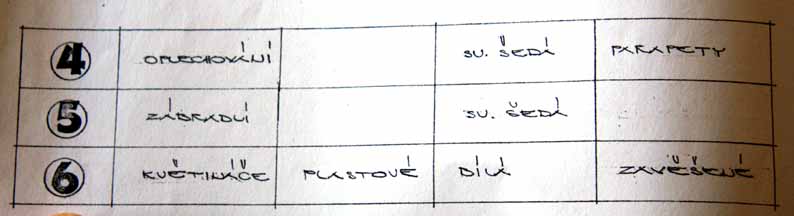 4 OPLECHOVÁNÍ SV. ŠEDÁ PARAPETY
5 ZÁBRADLÍ SV. ŠEDÁ
6 KVĚTINÁČE PLASTOVÉ BÍLÁ ZAVĚŠENÉ